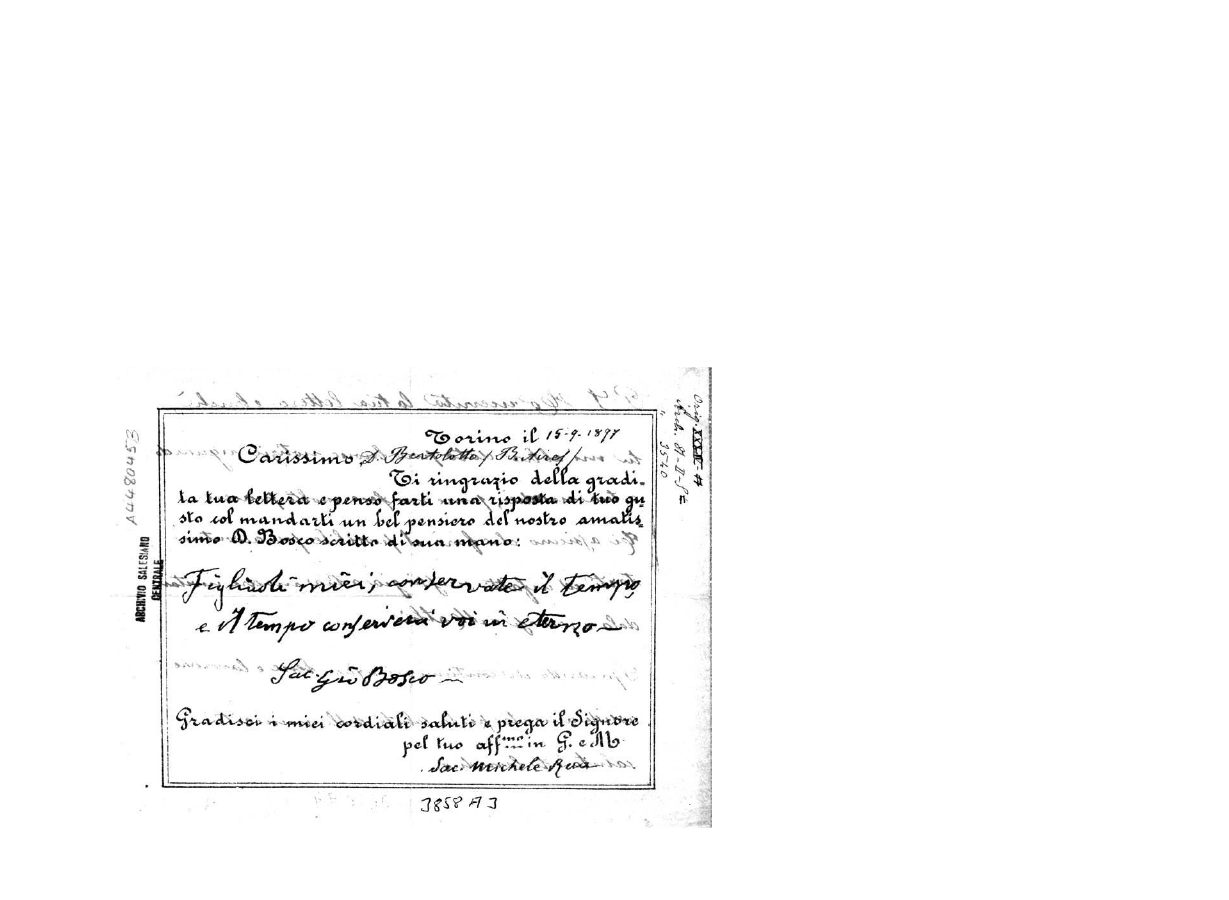 Torino il 15-9-1897
Carissimo D. Bertolotto
Ti ringrazio della gradi-
ta tua lettera e penso farti una risposta di tuo gu-
sto col mandarti un bel pensiero del nostro amatis-
simo D. Bosco scritto di sua mano:
Figliuoli miei, conservate il tempo,
e il tempo conserverà voi in eterno
Sac. Gio Bosco
Gradisci i miei cordiali saluti e prega il Signore
pel tuo aff.mo in G. e M.
Sac. Michele Rua
3858 A 3
A4480453
ARCHIVIO SALESIANO
CENTRALE
3540